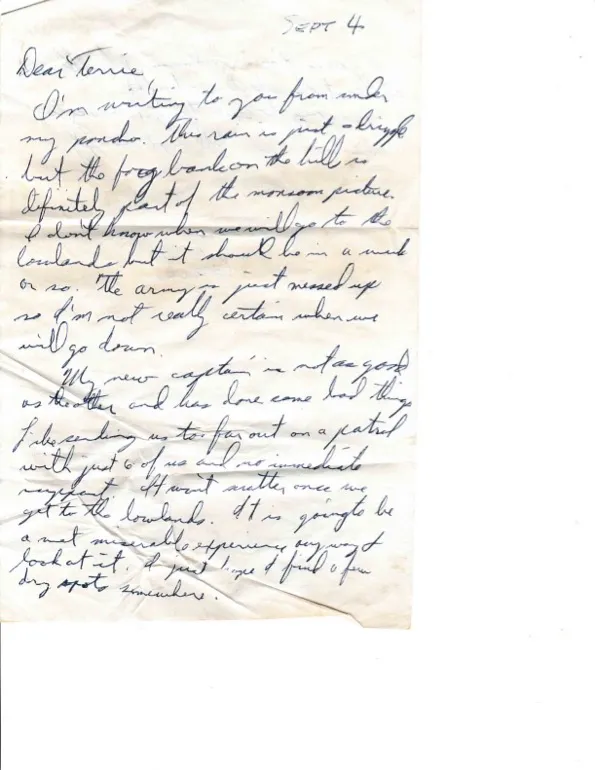 SEPT 4
Dear Terrie,
I'm writing to you from under
my poncho. This rain is just a drizzle
but the fog bank on the hill is
definitely part of the monsoon picture.
I don't know when we will go to the
lowlands but it should be in a week
or so. The army is just messed up
so I'm not really certain when we
will go down.
My new captain is not as good
as the other and has done some bad things
like sending us too far out on a patrol
with just 6 of us and no immediate
support. It won't matter once we
get to the lowlands. It is going to be
a wet miserable experience anyway I
look at it. I just hope I find a few
dry spots somewhere.